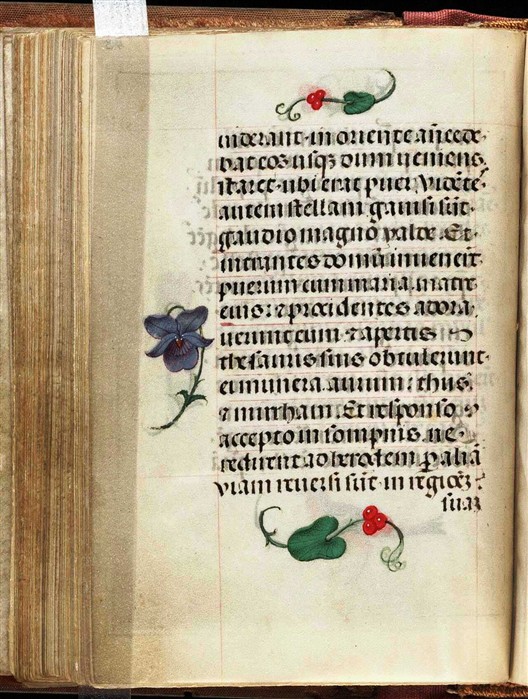 uiderant in oriente añcede·
bat eos usq̃ dum veniens
staret· ubi erat puer· Vidẽte
autem stellam gauisi sũt·
gaudio magno valde· Et
intrantes domũ inuenert̃
puerum cum maria matre
eius: ⁊ procidentes adora
uerunt eum· ⁊ apertis
thesauris suis obtulerunt·
ei munera aurum: thus,
⁊ mirrham· Et responso
accepto in sompnis· ne·
redirent ad herodem ꝑ aliã
viam reuersi sũt· in regioẽꝫ
suaꝫ